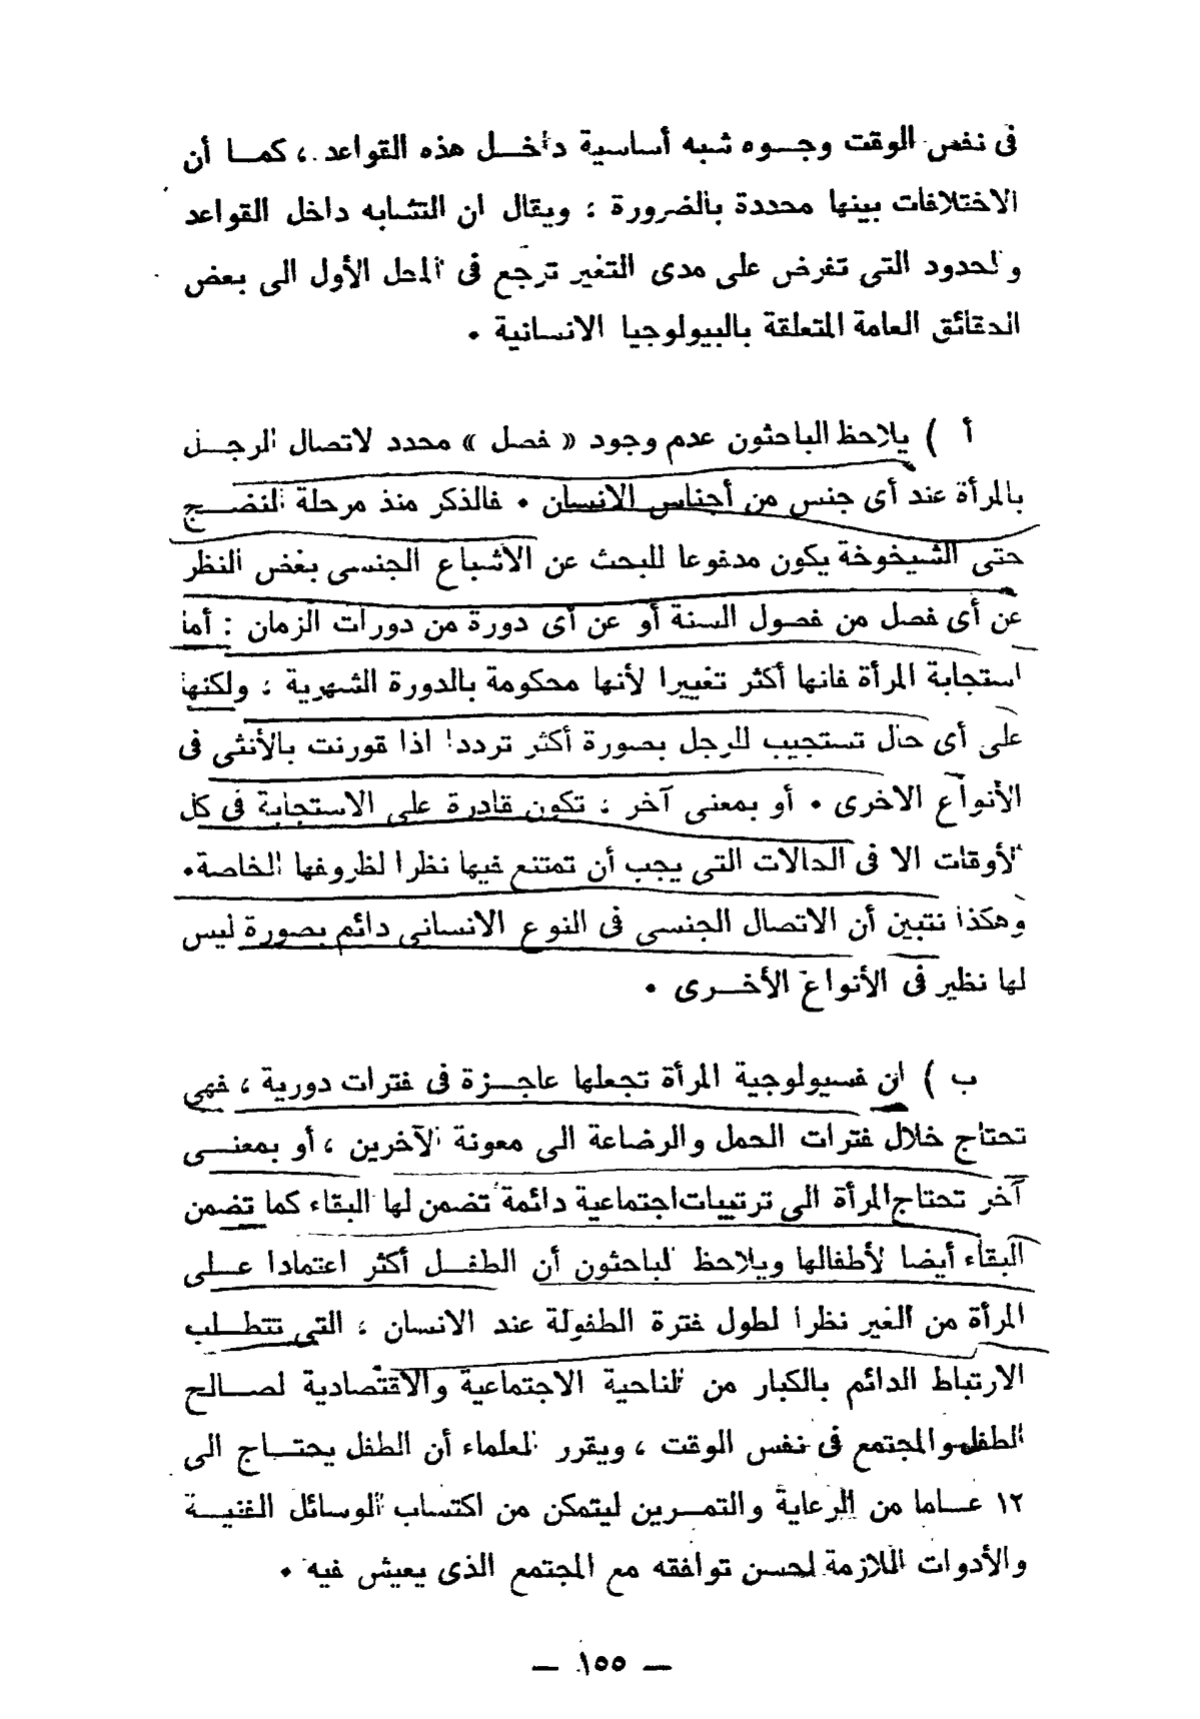 فى نفس الوقت وجـوه شبه أساسية داخـل هذه القواعد ، كمـا أن
الاختلافات بينها محددة بالضرورة ؛ ويقال ان التشابه داخل القواعد
والحدود التى تفرض على مدى التغير ترجع فى المحل الأول الى بعض
الحقائق العامة المتعلقة بالبيولوجيا الانسانية •
أ ) يلاحظ الباحثون عدم وجود « فصل » محدد لاتصال الرجـل
بالمرأة عند أى جنس من أجناس الانسان • فالذكر منذ مرحلة النضـج
حتى الشيخوخة يكون مدفوعا للبحث عن الاشباع الجنسى بغض النظر
عن أى فصل من فصول السنة أو عن أى دورة من دورات الزمان : أما
استجابة المرأة فانها أكثر تغييرا لأنها محكومة بالدورة الشهرية ؛ ولكنها
على أى حال تستجيب للرجل بصورة أكثر ترددا اذا قورنت بالأنثى فى
الأنواع الاخرى • أو بمعنى آخر ؛ تكون قادرة على الاستجابة فى كل
الأوقات الا فى الحالات التى يجب أن تمتنع فيها نظرا لظروفها الخاصة•
وهكذا نتبين أن الاتصال الجنسى فى النوع الانسانى دائم بصورة ليس
لها نظير فى الأنواع الأخـرى •
ب ) ان فسيولوجية المرأة تجعلها عاجـزة فى فترات دورية ، فهى
تحتاج خلال فترات الحمل والرضاعة الى معونة الآخرين ، أو بمعنـى
آخر تحتاج المرأة الى ترتيبات اجتماعية دائمة تضمن لها البقاء كما تضمن
البقاء أيضا لأطفالها ويلاحظ الباحثون أن الطفـل أكثر اعتمادا عـلى
المرأة من الغير نظرا لطول فترة الطفولة عند الانسان ؛ التى تتطـلب
الارتباط الدائم بالكبار من الناحية الاجتماعية والاقتصادية لصـالح
الطفل والمجتمع فى نفس الوقت ، ويقرر العلماء أن الطفل يحتـاج الى
١٢ عـاما من الرعاية والتمـرين ليتمكن من اكتساب الوسائل الفنيـة
والأدوات اللازمة لحسن توافقه مع المجتمع الذى يعيش فيه •
— ١٥٥ —